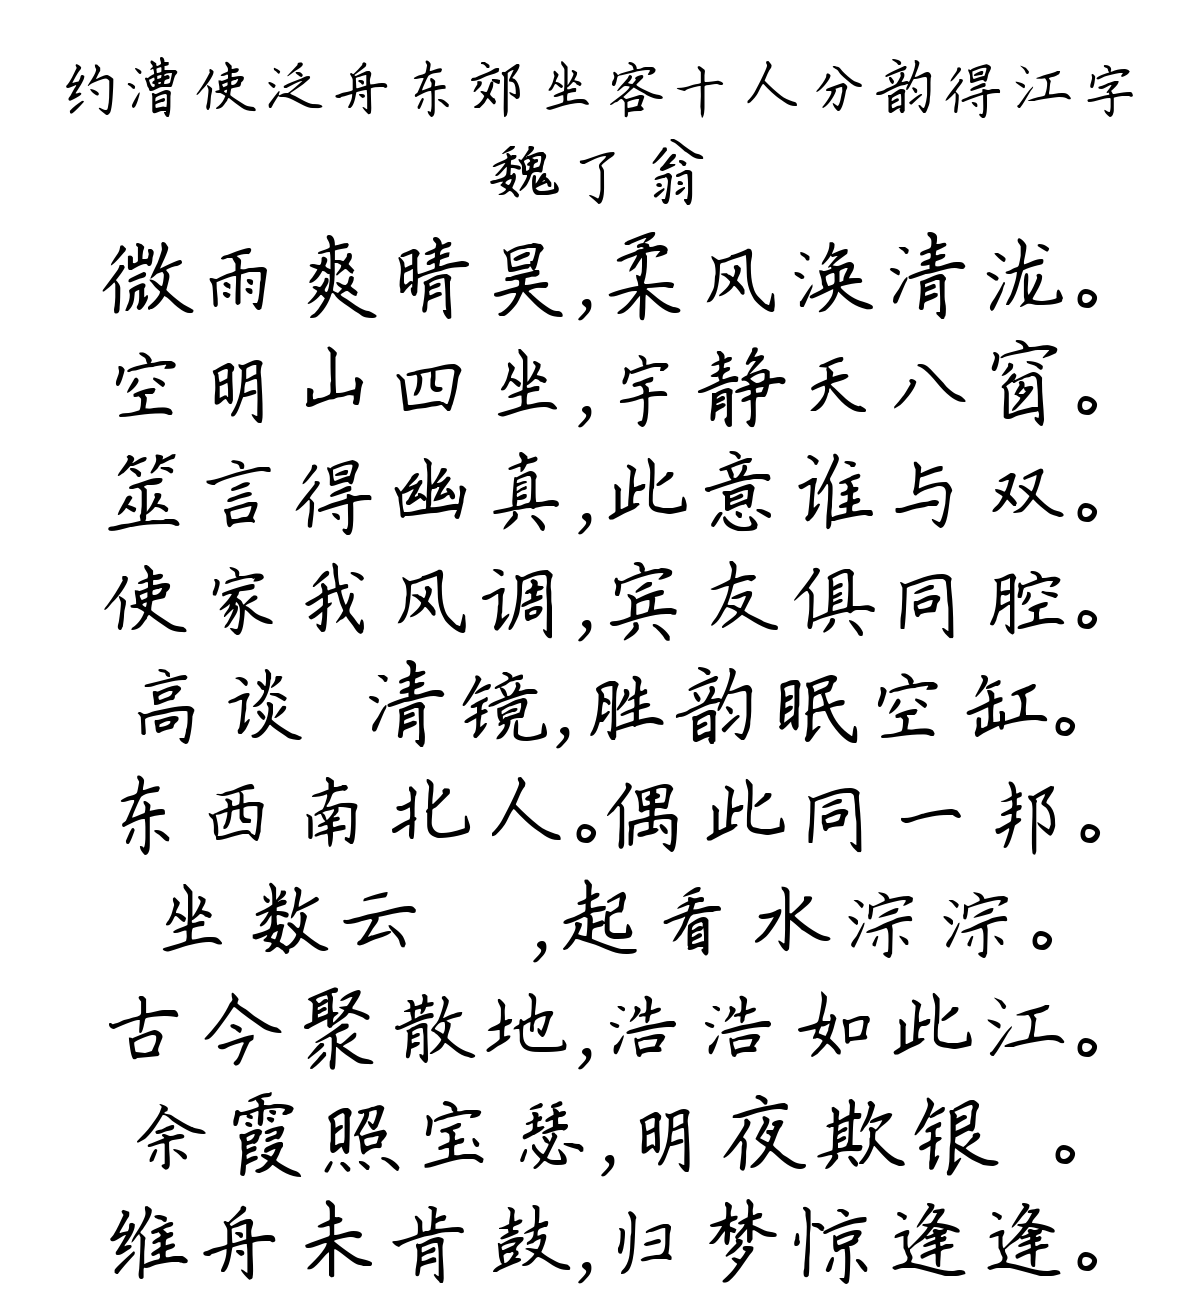 约漕使泛舟东郊坐客十人分韵得江字
魏了翁
微雨爽晴昊,柔风涣清泷。
空明山四坐,宇静天八窗。
筮言得幽真,此意谁与双。
使家我风调,宾友俱同腔。
高谈 清镜,胜韵眠空缸。
东西南北人。偶此同一邦。
坐数云 ,起看水淙淙。
古今聚散地,浩浩如此江。
余霞照宝瑟,明夜欺银 。
维舟未肯鼓,归梦惊逢逢。